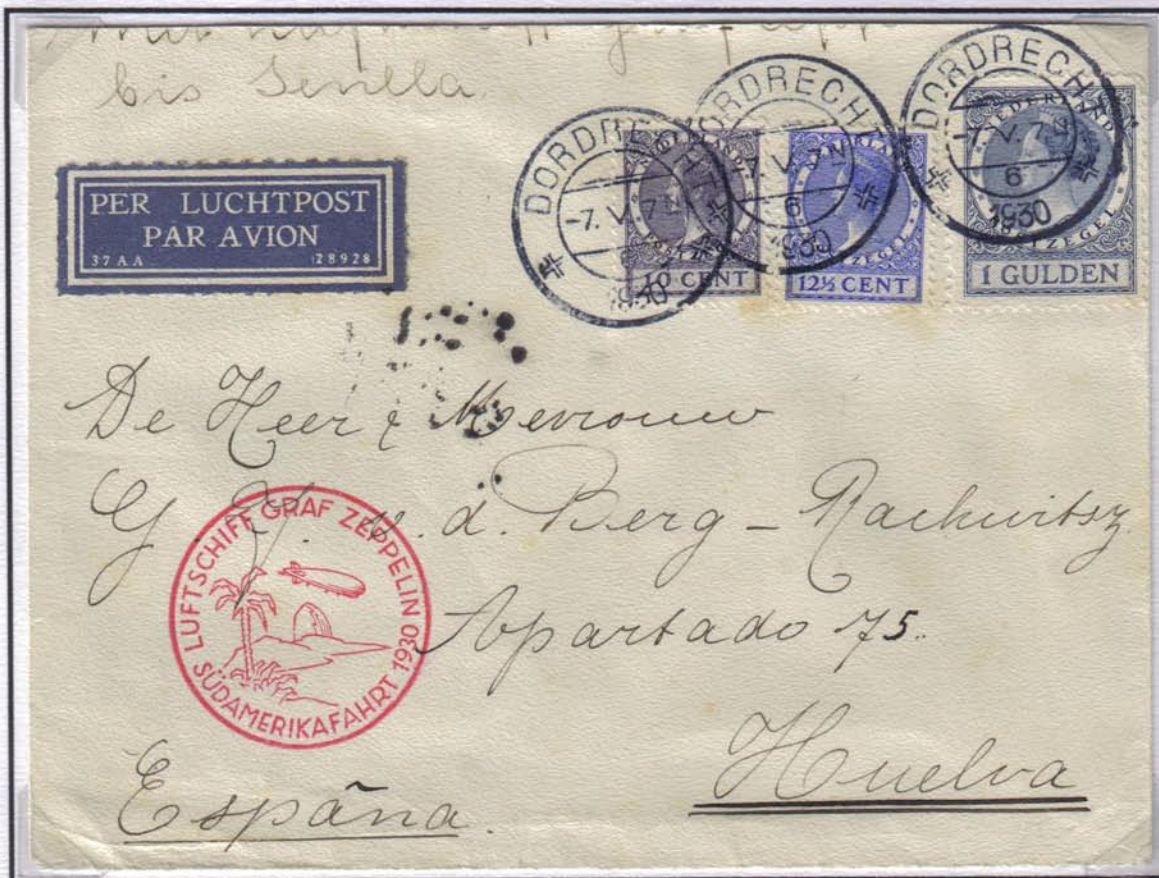 bis Sevilla
PER LUCHTPOST
PAR AVION
37 A A 28928
DORDRECHT
-7. V. 7
1930
DORDRECHT
V. 7N
6
1930
DORDRECHT
-7. V. 7N
6
1930
NEDERLAND
POSTZEGEL
10 CENT
POSTZEGEL
12½ CENT
NEDERLAND
POSTZEGEL
1 GULDEN
De Heer & Mevrouw
v. d. Berg - Rackwitsz
Apartado 75.
Huelva
España.
LUFTSCHIFF GRAF ZEPPELIN
SÜDAMERIKAFAHRT 1930